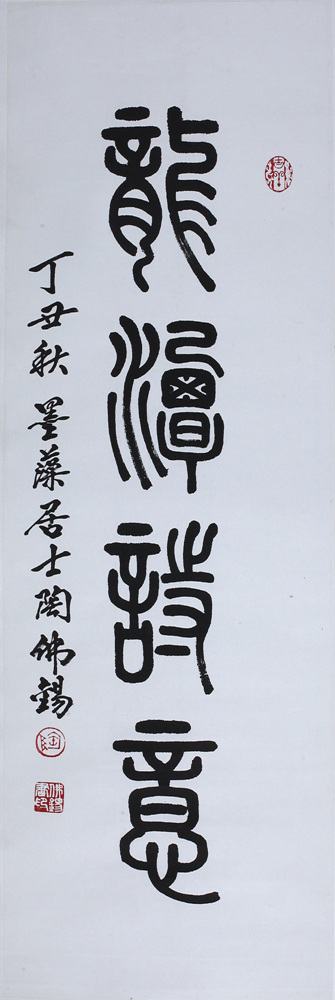 龍潭詩意
丁丑秋 墨藻居士陶佛錫